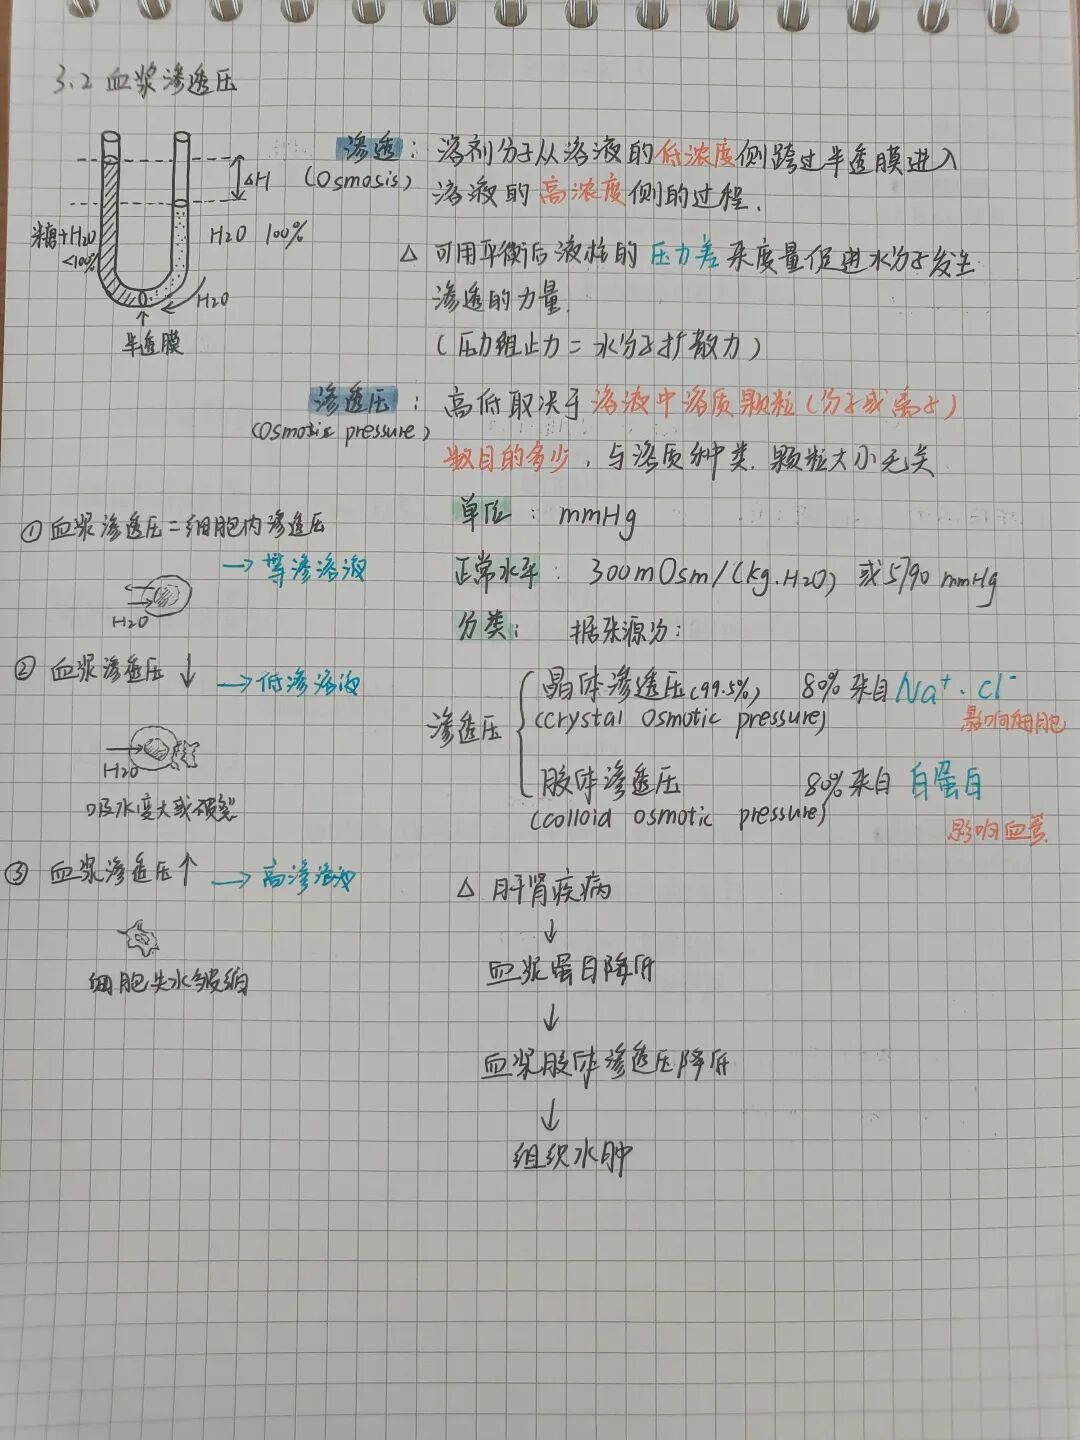 3.2 血浆渗透压
ΔH
糖+H2O
<100%
H2O 100%
H2O
半透膜
渗透：溶剂分子从溶液的低浓度侧跨过半透膜进入
(Osmosis)
溶液的高浓度侧的过程.
△ 可用平衡后液柱的压力差来度量促进水分子发生
渗透的力量.
(压力阻止力=水分子扩散力)
渗透压：高低取决于溶液中溶质颗粒(分子或离子)
(Osmotic pressure)
数目的多少，与溶质种类.颗粒大小无关
单位：mmHg
正常水平：300mOsm/(kg.H2O) 或5790 mmHg
分类：据来源分：
渗透压
晶体渗透压(99.5%) 80%来自Na⁺.Cl⁻
(crystal osmotic pressure) 影响细胞
胶体渗透压 80%来自 白蛋白
(colloid osmotic pressure) 影响血管
△ 肝肾疾病
↓
血浆蛋白降低
↓
血浆胶体渗透压降低
↓
组织水肿
① 血浆渗透压=细胞内渗透压
→等渗溶液
H2O
② 血浆渗透压↓ →低渗溶液
H2O
吸水变大或破裂
③ 血浆渗透压↑ →高渗溶液
细胞失水皱缩